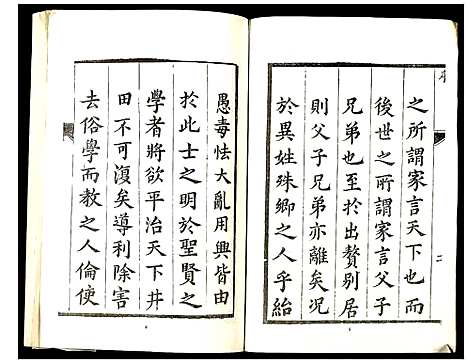 之所謂家言天下也而
後世之所謂家言父子
兄弟也至於出贅别居
則父子兄弟亦離矣况
於異姓殊鄉之人乎紿
二
愚毒怯大亂用興皆由
於此士之明於聖賢之
學者將欲平治天下井
田不可復矣導利除害
去俗學而教之人倫使